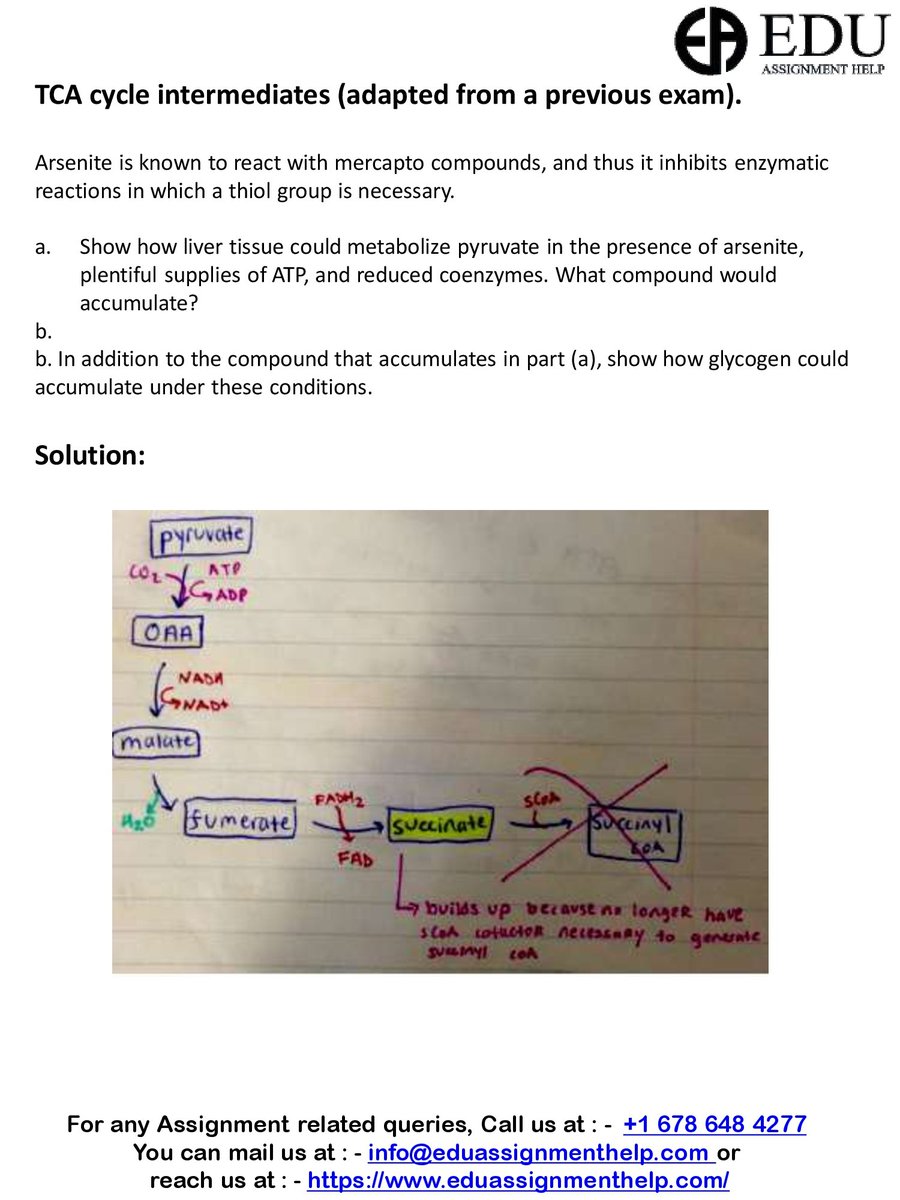 EA EDU
ASSIGNMENT HELP
TCA cycle intermediates (adapted from a previous exam).
Arsenite is known to react with mercapto compounds, and thus it inhibits enzymatic
reactions in which a thiol group is necessary.
a. Show how liver tissue could metabolize pyruvate in the presence of arsenite,
plentiful supplies of ATP, and reduced coenzymes. What compound would
accumulate?
b.
b. In addition to the compound that accumulates in part (a), show how glycogen could
accumulate under these conditions.
Solution:
pyruvate
CO2 ATP
ADP
OAA
NADH
NAD+
malate
H2O
fumerate
FADH2
FAD
succinate
SCoA
succinyl
CoA
builds up because no longer have
SCoA cofactor necessary to generate
succinyl coA
For any Assignment related queries, Call us at : - +1 678 648 4277
You can mail us at : - info@eduassignmenthelp.com or
reach us at : - https://www.eduassignmenthelp.com/